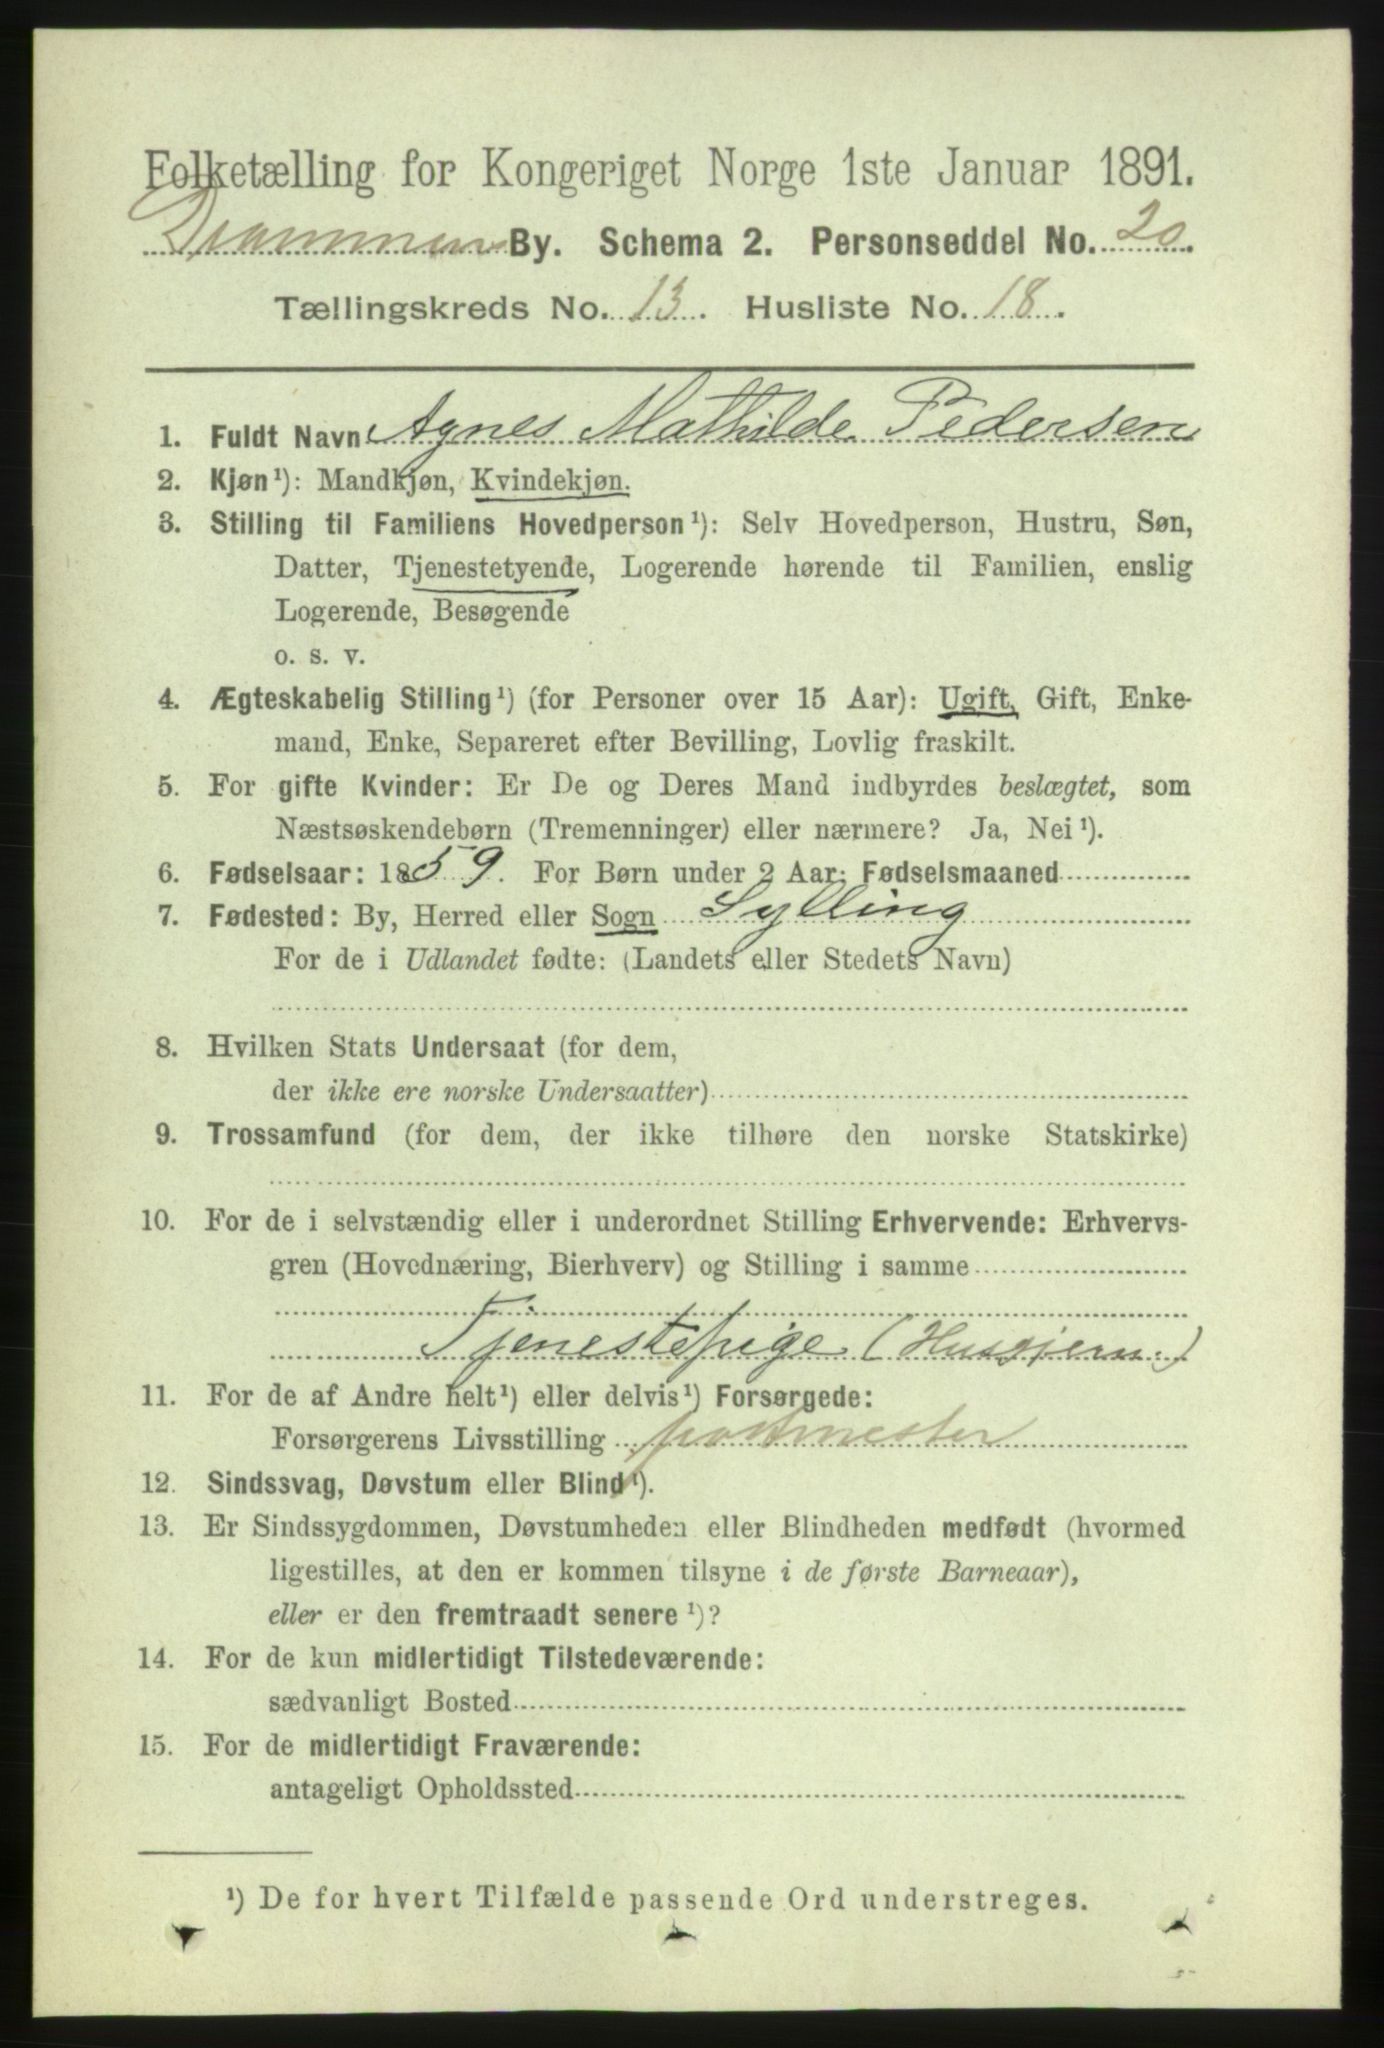 Folketælling for Kongeriget Norge 1ste Januar 1891.
Drammens By. Schema 2. Personseddel No. 20.
Tællingskreds No. 13. Husliste No. 18.
1. Fuldt Navn Agnes Mathilde Pedersen
2. Kjøn¹): Mandkjøn, Kvindekjøn.
3. Stilling til Familiens Hovedperson¹): Selv Hovedperson, Hustru, Søn,
Datter, Tjenestetyende, Logerende hørende til Familien, enslig
Logerende, Besøgende
o. s. v.
4. Ægteskabelig Stilling¹) (for Personer over 15 Aar): Ugift, Gift, Enke-
mand, Enke, Separeret efter Bevilling, Lovlig fraskilt.
5. For gifte Kvinder: Er De og Deres Mand indbyrdes beslægtet, som
Næstsøskendebørn (Tremenninger) eller nærmere? Ja, Nei¹).
6. Fødselsaar: 1859. For Børn under 2 Aar: Fødselsmaaned
7. Fødested: By, Herred eller Sogn Sylling
For de i Udlandet fødte: (Landets eller Stedets Navn)
8. Hvilken Stats Undersaat (for dem,
der ikke ere norske Undersaatter)
9. Trossamfund (for dem, der ikke tilhøre den norske Statskirke)
10. For de i selvstændig eller i underordnet Stilling Erhvervende: Erhvervs-
gren (Hovednæring, Bierhverv) og Stilling i samme
Tjenestepige (Husgjern.)
11. For de af Andre helt¹) eller delvis¹) Forsørgede:
Forsørgerens Livsstilling postmester
12. Sindssvag, Døvstum eller Blind¹).
13. Er Sindssygdommen, Døvstumheden eller Blindheden medfødt (hvormed
ligestilles, at den er kommen tilsyne i de første Barneaar),
eller er den fremtraadt senere¹)?
14. For de kun midlertidigt Tilstedeværende:
sædvanligt Bosted
15. For de midlertidigt Fraværende:
antageligt Opholdssted
¹) De for hvert Tilfælde passende Ord understreges.